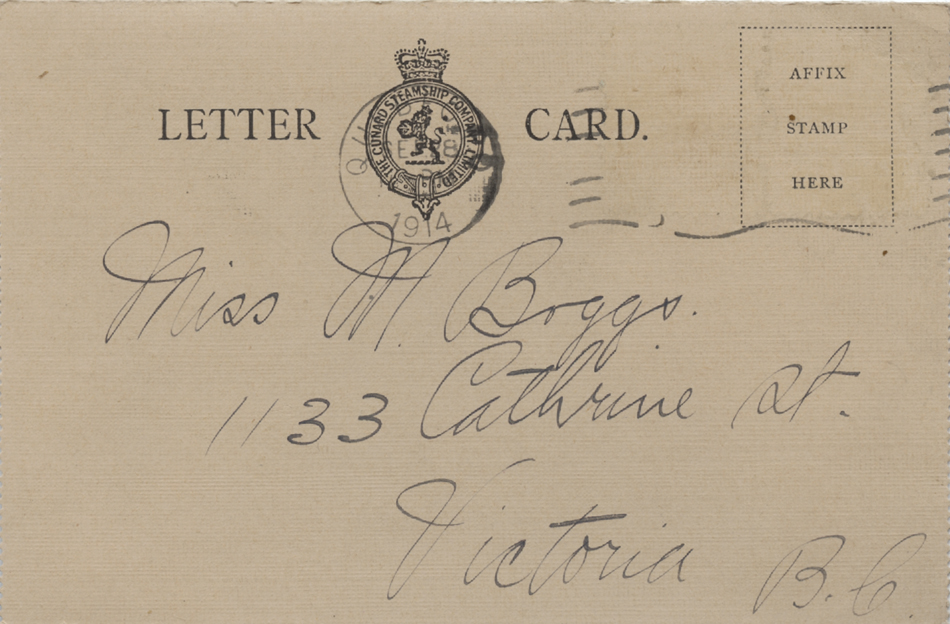 LETTER CARD.
THE CUNARD STEAMSHIP COMPANY LIMITED
1914
AFFIX
STAMP
HERE
Miss M. Boggs.
1133 Cathrine St.
Victoria B.C.